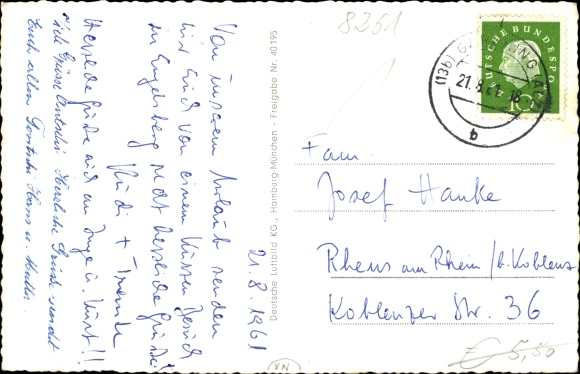 21.8.1961
Von unserem Urlaub senden
wir Euch von einem kurzen Besuch
in Engelsberg recht herzliche Grüße
Rudi + Traude
Herzliche Grüße auch an Inge u. Kurt!!
Herzliche Grüße sendet
Euch allen Hans u.
Deutsche Luftbild KG., Hamburg-München - Freigabe Nr. 40195
8261
DEUTSCHE BUNDESPOST
10
(13b) GARCHING ALZ
21.8.61-18
b
Fam.
Josef Hanke
Rhens am Rhein / b. Koblenz
Koblenzer Str. 36
VN
€ 5,50